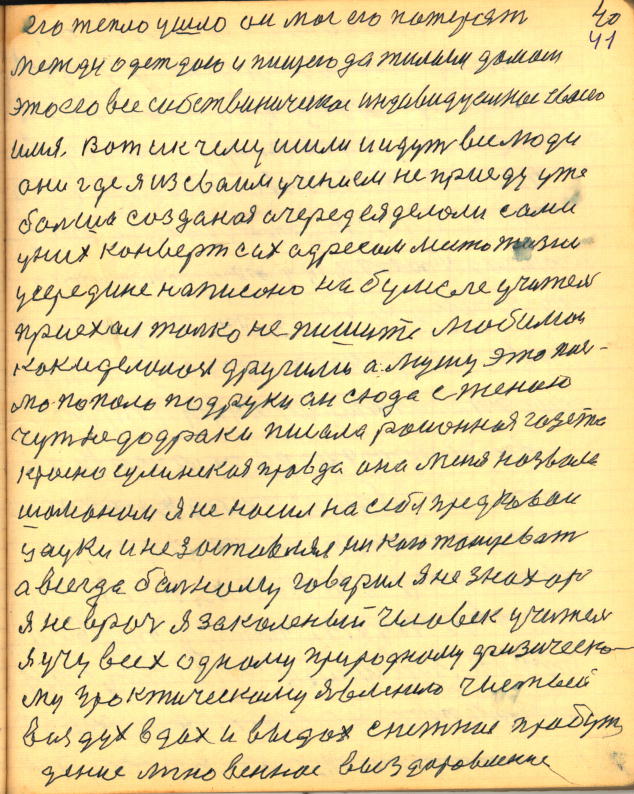 его тепло ушло он мог его потерят 40
41
между одеждою и пищею да жилым домом
это его все собственическое индивидуалное своего
имя. Вот и к чему шли и идут все люди
они где я из сваим учением не приеду уже
болша созданоя очередея делоли сами
у них конверт с их адресам место жизни
усередине написоно на бумоге учителя
приехал толко не пишите любимои
как и делолои другим а мужу это
попало подруки он сюда с женою
чут не додраки писала раионноя газета
красносулинскоя правда она меня назвала
шаманом я не носил на себя предковои
науки и не зоставлял никого
а всегда болному говарил я не знахор
я не врач я закаленый человек учителя
я учу всех одному природному физическо
му проктическому явлению чистыи
воздух вдох и выдох снежное пробуж
дение мгновенное выездоровление